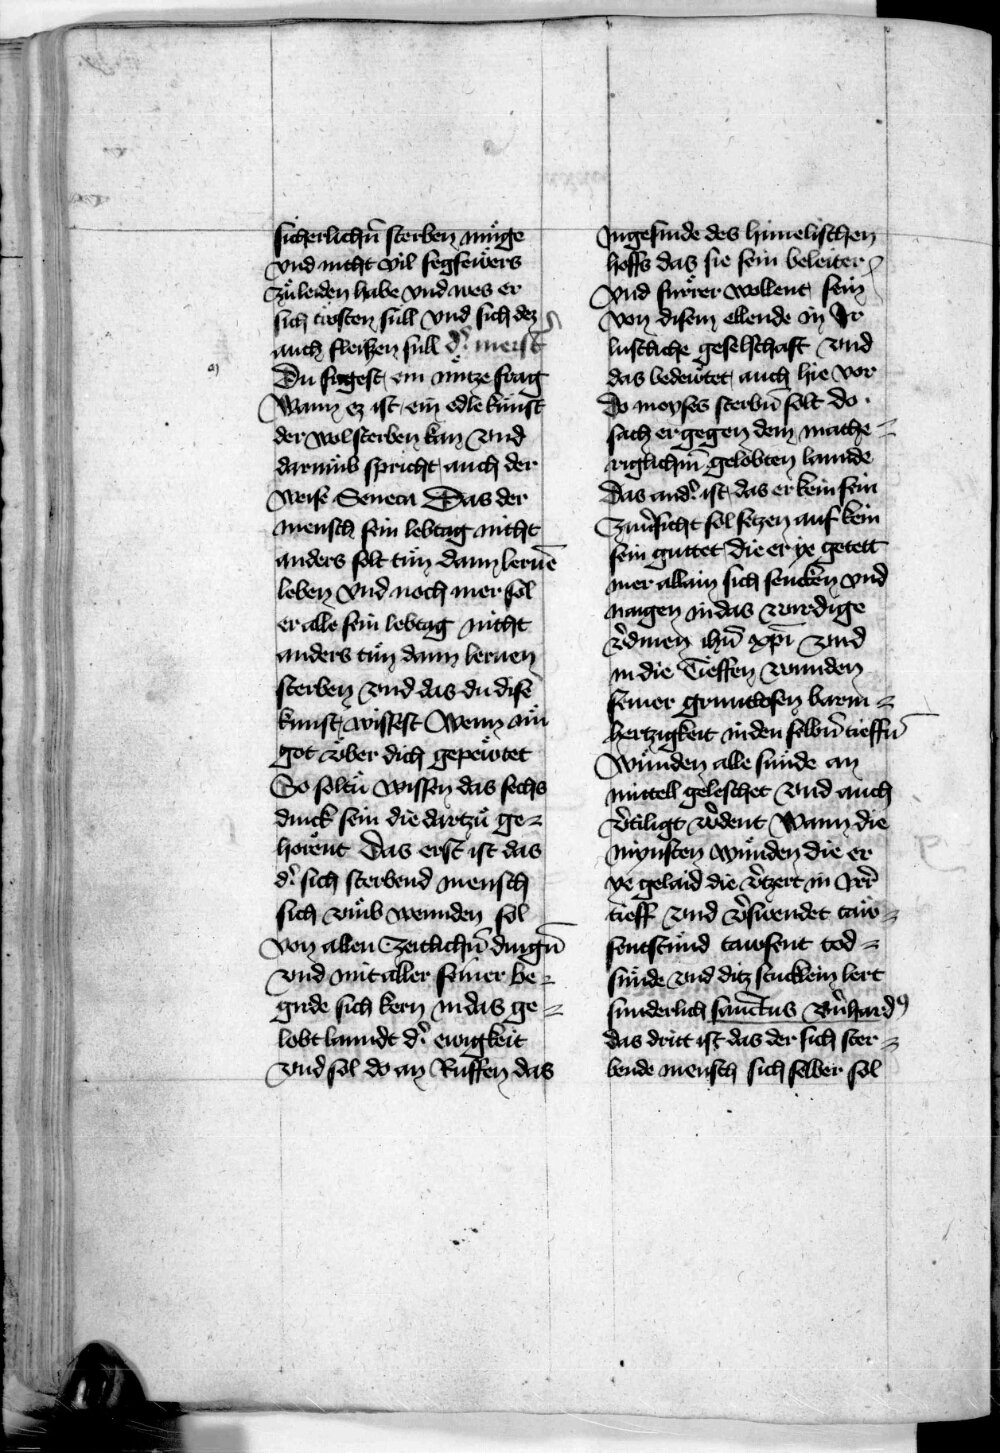 sicherlichn̄ sterben müge
vnd nicht vil fegfeẅers
zůleiden habe vnd wes er
sich trösten süll vnd sich dez
auch fleißen süll d' meist̄
Du fragest ein nütze frag
Wann ez ist ein edle kunst
der wol sterben kan vnd
darumb spricht auch der
weise Seneca Das der
mensch sein lebtag nicht
anders solt tün dann lernē
leben vnd noch mer sol
er alle sein lebtag nicht
anders tün dann lernen
sterben vnd das du dise
kunst wissest Wenn nü
got über dich gepeẅtet
So soltu wissen das sechs
dinck sein die dartzů ge-
hörent Das erst ist das
d' sich sterbend mensch
sich vmb wennden sol
von allen zeitlichn̄ dingn̄
vnd mit aller seiner be-
girde sich kern in das ge-
lobt lanndt d' ewigkeit
vnd sol do an Ruffen das
Ingesinde des himelischen
hoffs das sie sein beleiter
vnd fürrer wollent sein
von disem ellende in Ir
lustliche geselschaft vnd
das bedeẅtet auch hie vor
Do moyses sterbn̄ solt do
sach er gegen dem mathe-
riglichn̄ gelobten lannde
Das and' ist das er kein sein
zuu'sicht sol setzen auf kein
sein guttet die er ye getett
mer allain sich sencken vnd
naigen in das wirdige
v'dinen ihū xpī vnd
in die tieffen wunden
seiner grundlosen barm-
hertzigkeit in den selbn̄ tieffn̄
wunden alle sünde an
mittell geleschet vnd auch
v'tiligt w'dent Wann die
mynsten wunden die er
ye gelaid die v'tzert in Irr'
tieff vnd v'swendet taw-
sentstund tawsent tod-
sünde vnd ditz stucklein lert
sunderlich sanctus B'nhard9
das dritt ist das der sich ster-
bende mensch sich selber sol